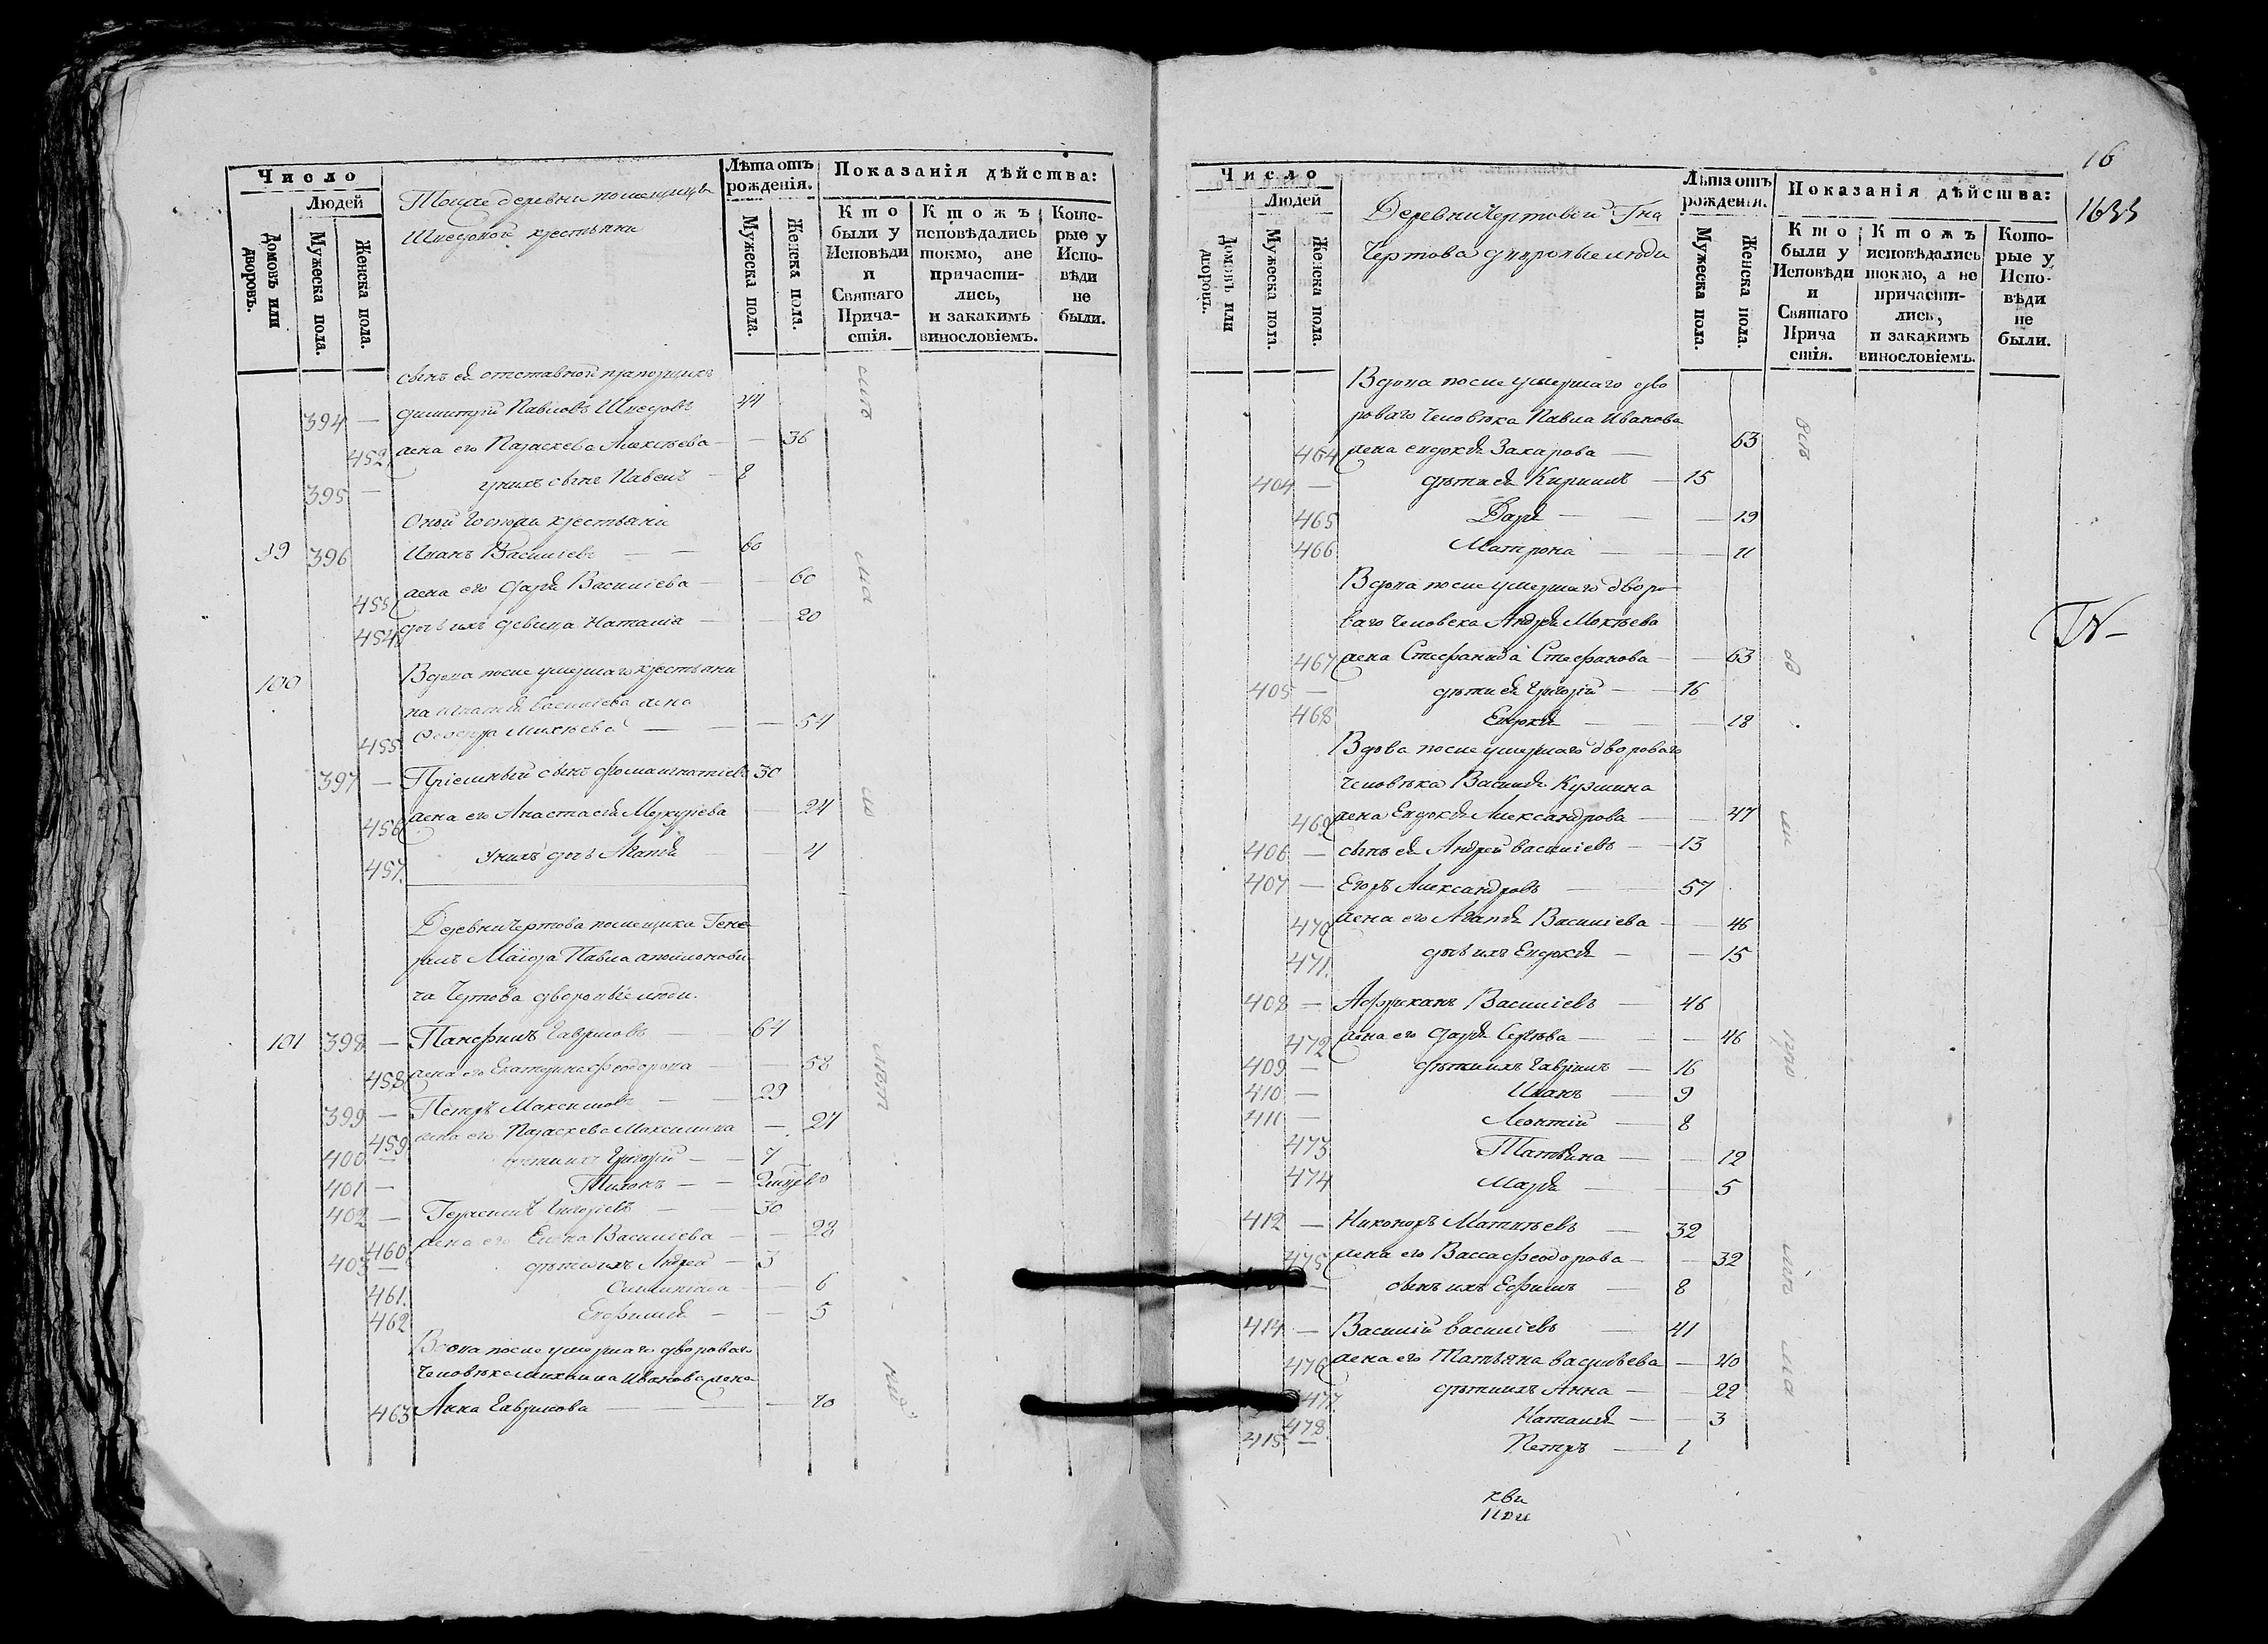 Число
Людей
Домовъ или дворовъ.
Мужеска пола.
Женска пола.
Тоя же деревни помещицы
Шнедовой крестьяни
Лѣта отъ рожденія.
Мужеска пола.
Женска пола.
Показанія дѣйства:
Кто были у Исповѣди и Святаго Прича-стія.
Ктожъ исповѣдались токмо, а не причасти-лись, и закакимъ винословіемъ.
Кото-рые у Испо-вѣди не были.
сынъ ея отставной прапорщикъ
394 — Димитрій Павловъ 44
452 жена его Параскева Алексѣева — — 36
395 — у нихъ сынъ Павелъ — 8
Оной Госпожи крестьяни
99 396 Иванъ Васильевъ — — 60
453 жена его Дарья Васильева — — 60
454 дочь ихъ девица Наталія — — 20
100 Вдова после умершаго крестьяни
на Игнатія Васильева жена
455 Михѣева — — 54
397 — Пріемный сынъ Фома Игнатіевъ 30
456 жена его Анастасія Меркурьева — 24
457 У нихъ дочь Агапія — 4
Деревни Чертова помещика Гене
ралъ Маіора Павла Аполлонови
ча Чертова дворовые люди.
101 398 — Панфилъ Гавриловъ — 64
458 жена его Екатерина Феодорова — — 58
399 — Петръ Максимовъ — 29
459 жена его Параскева Максимова — 24
400 — дѣти ихъ Григорій — — 7
401 — Тихонъ — —
402 — Герасимъ Григорьевъ — 30
460 жена его Елена Васильева — — 28
403 — дѣти ихъ Андрей — 3
461. — 6
462 Евфимія — — 5
Вдова после умершаго дворова
человѣка Михаила Иванова жена
463 Анна Гаврилова — — 70
16
Число
Людей
Домовъ или дворовъ.
Мужеска пола.
Женска пола.
Деревни Чертовой Гна
Чертова дворовые люди
Лѣта отъ рожденія.
Мужеска пола.
Женска пола.
Показанія дѣйства:
Кто были у Исповѣди и Святаго Прича стія.
Ктожъ исповѣдались токмо, а не причасти-лись, и закакимъ винословіемъ.
Кото-рые у Испо-вѣди не были.
Вдова после умершаго дво
роваго человѣка Павла Иванова
464 жена Евдокія Захарова — 63
404 — дѣти ея Кирилъ — 15
465 Дарья — — — 19
466 Матрона — — 11
Вдова после умершаго дворо
ваго человека Андрея Мокѣева
467 жена Стефанида Стефанова — — 63
405 — дѣти ея Григорій — — 16
468 Евдокія — — — 18
Вдова после умершаго двороваго
человѣка Василія Кузмина
469 жена Евдокія Александрова — — 47
406 — сынъ ея Андрей Васильевъ — 13
407 — Егоръ Александровъ — 57
470 жена его Агапія Васильева — — 46
471. дочь ихъ Евдокія — — 15
408 — Африканъ Васильевъ — 46
472 жена его Дарья Сергѣева — — 46
409 — дѣти ихъ Гаврилъ — 16
410 — Иванъ — 9
411 — Леонтій — 8
473 Татьяна — — 12
474 Марья — — 5
412 — Никоноръ Матвѣевъ — 32
475 жена его Васса Феодорова — — 32
— сынъ ихъ Ефимъ — 8
414 — Василій Васильевъ — 41
476 жена его Татьяна Васильева — 40
477. дѣти ихъ Анна — — 22
478. Наталія — — 3
415 — Петръ — 1